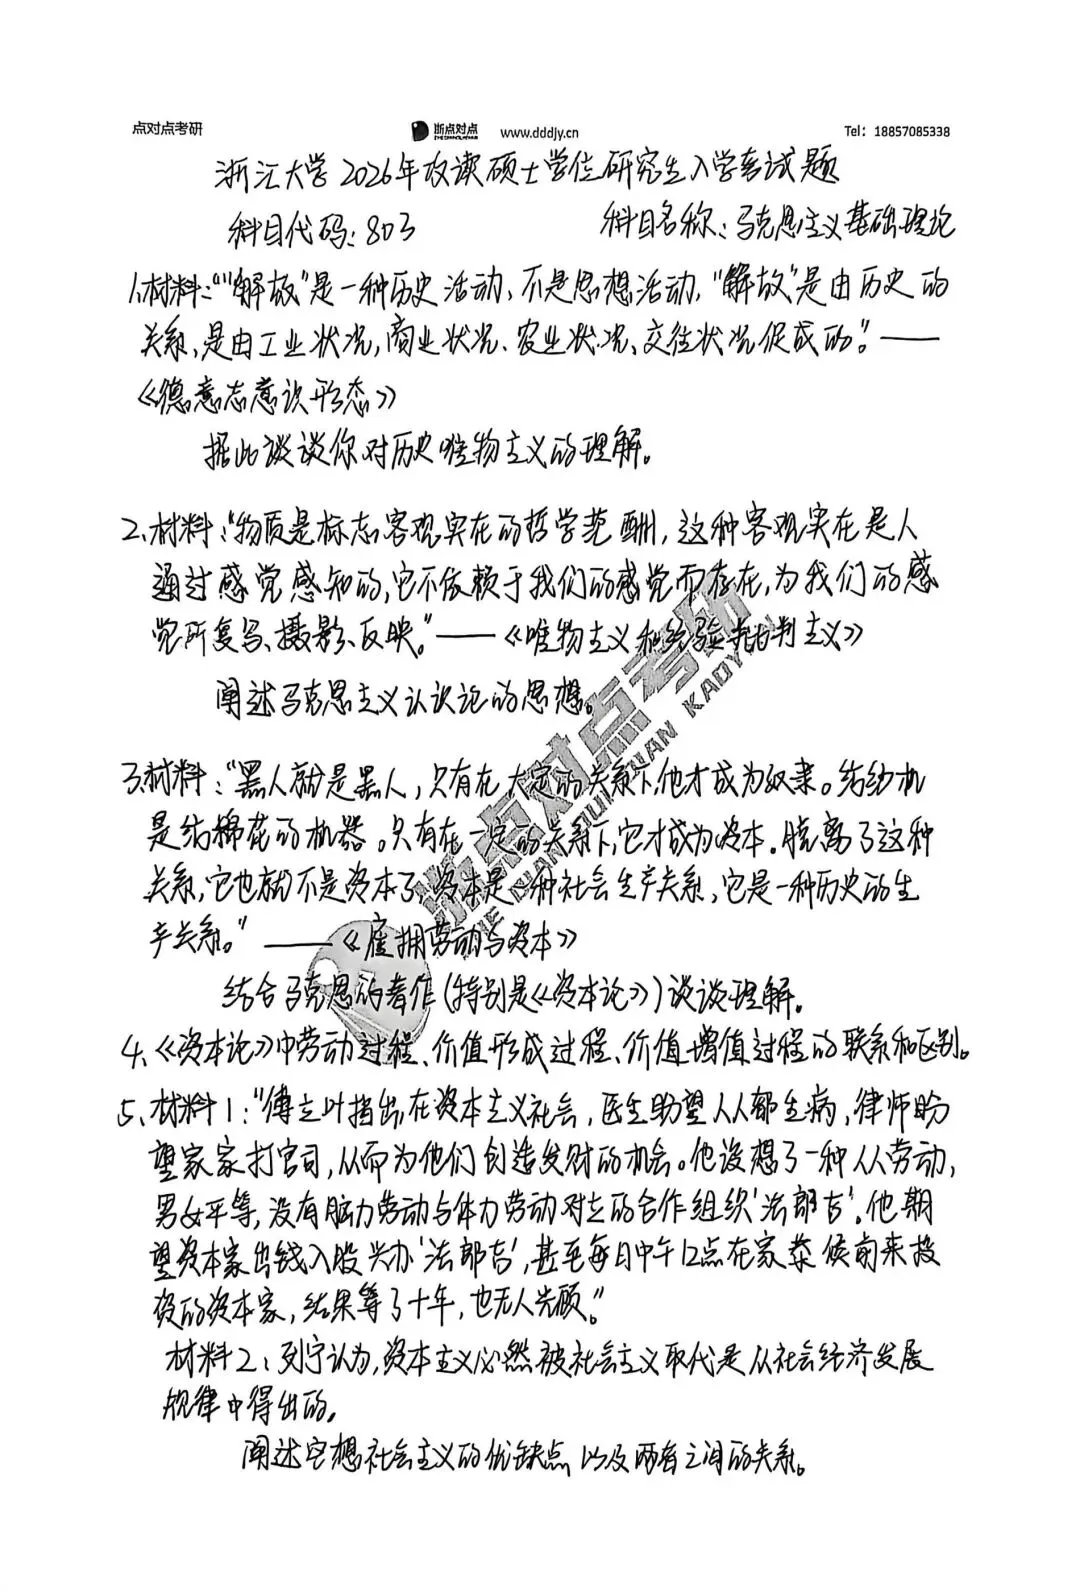 点对点考研 浙点对点 www.dddjy.cn Tel: 18857085338
浙江大学2026年攻读硕士学位研究生入学考试题
科目代码:803 科目名称:马克思主义基础理论
1.材料:“"解放"是一种历史活动,不是思想活动,"解放"是由历史的
关系,是由工业状况,商业状况、农业状况、交往状况促成的。”——
《德意志意识形态》
据此谈谈你对历史唯物主义的理解。
2.材料:“物质是标志客观实在的哲学范畴,这种客观实在是人
通过感觉感知的,它不依赖于我们的感觉而存在,为我们的感
觉所复写、摄影、反映。”——《唯物主义和经验批判主义》
阐述马克思主义认识论的思想。
3.材料:“黑人就是黑人,只有在一定的关系下,他才成为奴隶。纺纱机
是纺棉花的机器。只有在一定的关系下,它才成为资本.脱离了这种
关系,它也就不是资本了,资本是一种社会生产关系,它是一种历史的生
产关系。”——《雇拥劳动与资本》
结合马克思的著作(特别是《资本论》)谈谈理解。
4.《资本论》中劳动过程、价值形成过程、价值增值过程的联系和区别。
5.材料1:“傅立叶指出,在资本主义社会,医生盼望人人都生病,律师盼
望家家打官司,从而为他们创造发财的机会。他设想了一种人人劳动,
男女平等,没有脑力劳动与体力劳动对立的合作组织'法郎吉'.他期
望资本家出钱入股兴办'法郎吉',甚至每日中午12点在家恭候前来投
资的资本家,结果等了十年,也无人光顾。”
材料2:列宁认为,资本主义必然被社会主义取代是从社会经济发展
规律中得出的.
阐述空想社会主义的优缺点以及两者之间的关系。
浙点对点考研
ZHE DIAN DUI DIAN KAO YAN